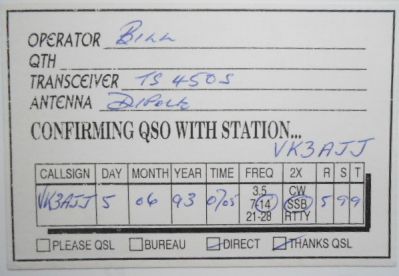 OPERATOR Bill
QTH
TRANSCEIVER TS 450S
ANTENNA Dipole
CONFIRMING QSO WITH STATION...
VK3AJJ
CALLSIGN DAY MONTH YEAR TIME FREQ 2X R S T
3.5 CW
VK3AJJ 5 06 93 0705 7-14 SSB 5 9 9
21-28 RTTY
PLEASE QSL BUREAU DIRECT THANKS QSL